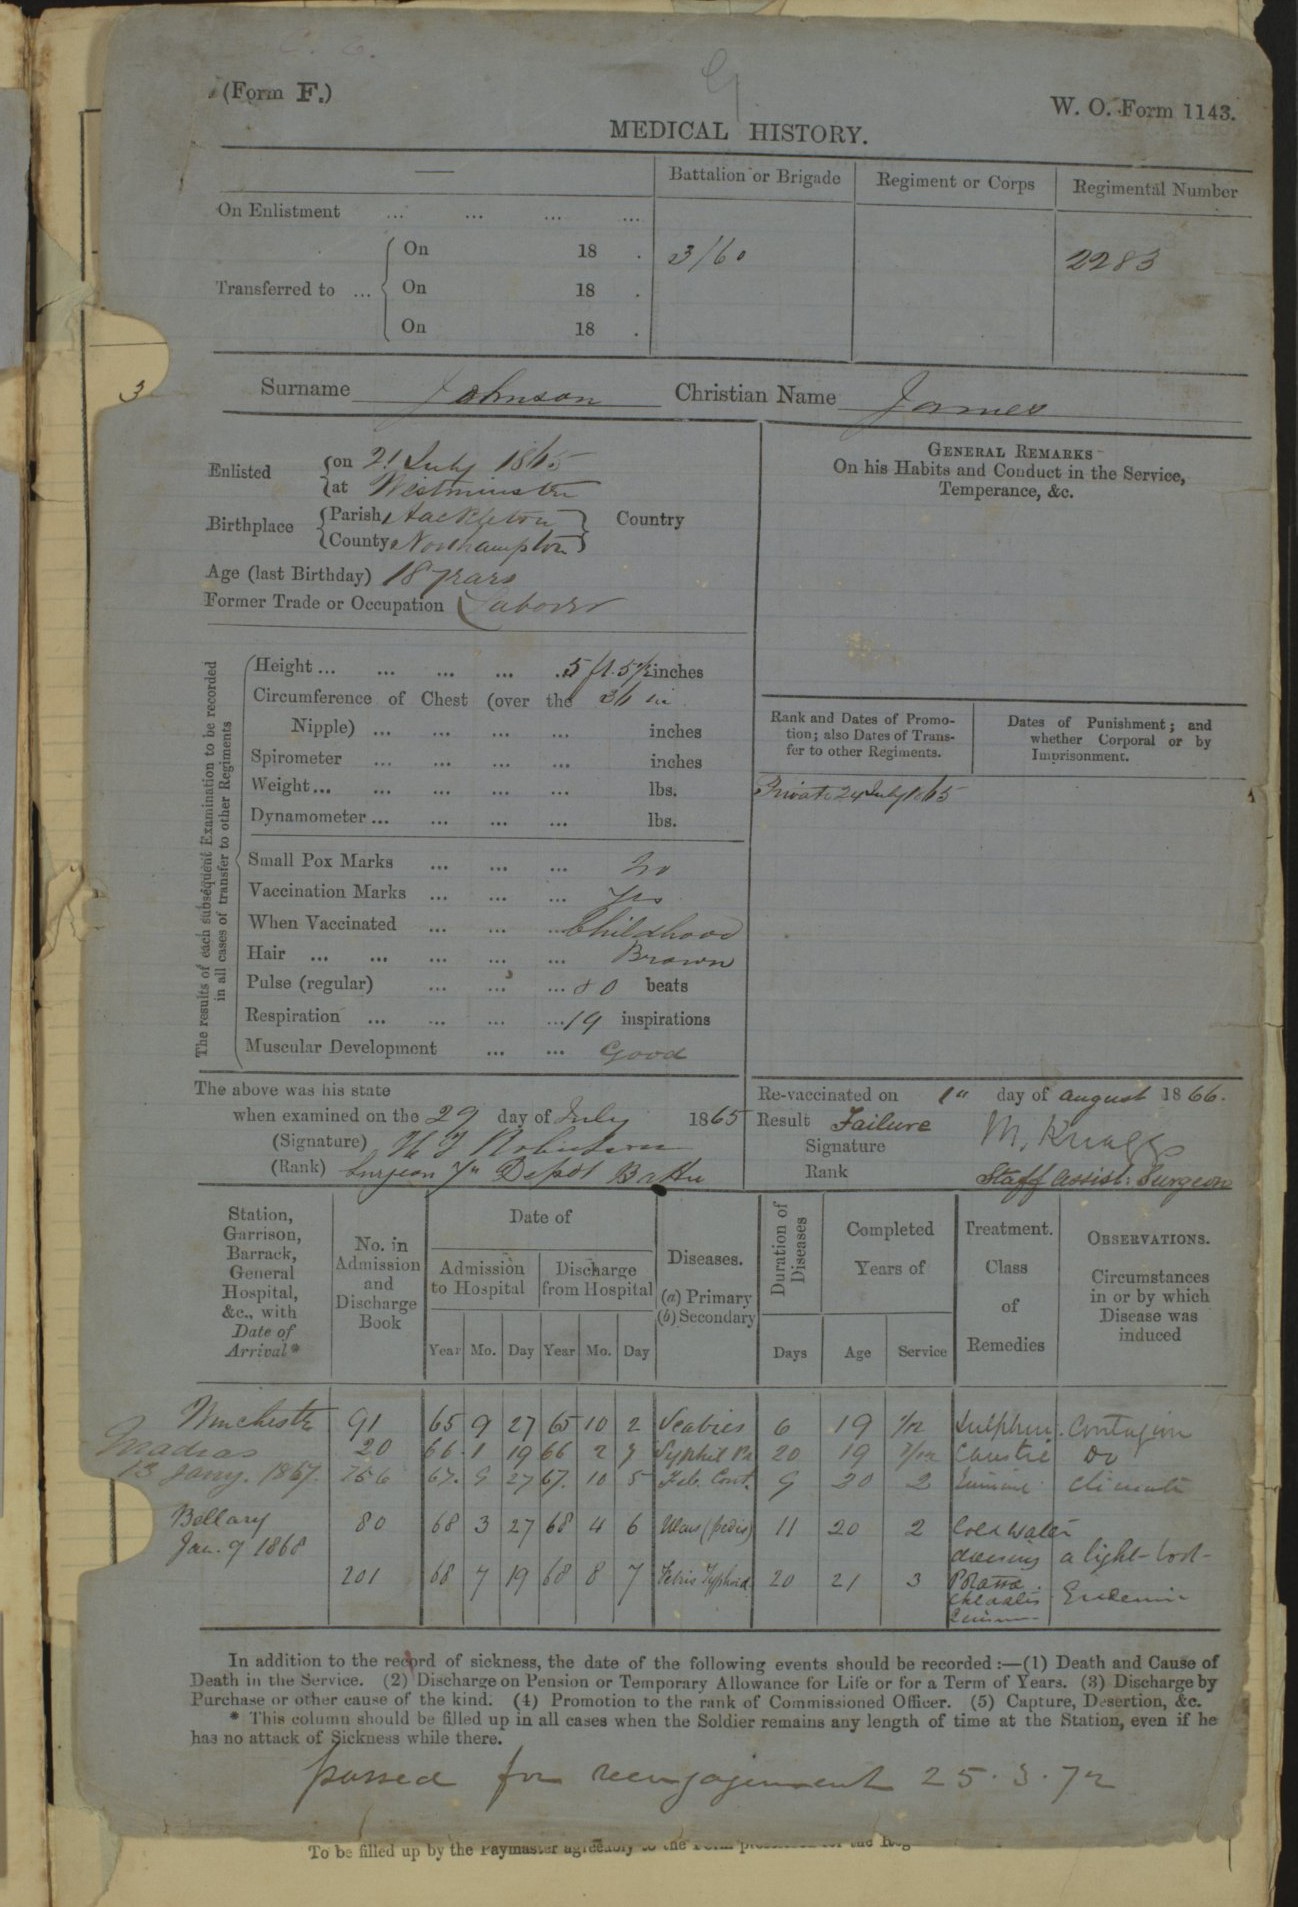 (Form F.)
W. O. Form 1143.
MEDICAL HISTORY.
Battalion or Brigade Regiment or Corps Regimental Number
On Enlistment ... ... ... ...
Transferred to ... On 18 . 3/60 2283
On 18 .
On 18 .
3
Surname Johnson Christian Name James
Enlisted on 21 July 1865
at Westminster
Birthplace Parish Country
County Northampton
Age (last Birthday) 18 years
Former Trade or Occupation Laborer
GENERAL REMARKS
On his Habits and Conduct in the Service,
Temperance, &c.
The results of each subsequent Examination to be recorded
in all cases of transfer to other Regiments
Height ... ... ... ... ... 5 ft. 5½ inches
Circumference of Chest (over the 36 in
Nipple) ... ... ... ... inches
Spirometer ... ... ... ... inches
Weight ... ... ... ... ... lbs.
Dynamometer ... ... ... ... lbs.
Small Pox Marks ... ... ... No
Vaccination Marks ... ... ... Yes
When Vaccinated ... ... ... Childhood
Hair ... ... ... ... ... Brown
Pulse (regular) ... ... ... 80 beats
Respiration ... ... ... ... 19 inspirations
Muscular Development ... ... Good
Rank and Dates of Promo-
tion; also Dates of Trans-
fer to other Regiments.
Dates of Punishment; and
whether Corporal or by
Imprisonment.
Private 24 July 1865
The above was his state
when examined on the 29 day of July 1865
(Signature)
(Rank) Surgeon Depot Battn
Re-vaccinated on 1" day of august 1866.
Result Failure
Signature M. Knaggs
Rank Staff Assist: Surgeon
Station,
Garrison,
Barrack,
General
Hospital,
&c., with
Date of
Arrival*
No. in
Admission
and
Discharge
Book
Date of
Admission
to Hospital
Discharge
from Hospital
Year Mo. Day Year Mo. Day
Diseases.
(a) Primary
(b) Secondary
Duration of
Diseases
Days
Completed
Years of
Age Service
Treatment.
Class
of
Remedies
OBSERVATIONS.
Circumstances
in or by which
Disease was
induced
Winchester 91 65 9 27 65 10 2 Scabies 6 19 2/12 Sulphur. Contagion
Madras 20 66 1 19 66 2 7 Syphil Pr 20 19 7/12 Caustic Do
13 Jany. 1867. 756 67. 9 27 67. 10 5 Feb. Cont. 9 20 2 Quinine Climate
Bellary 80 68 3 27 68 4 6 Ulcus (pedis) 11 20 2 Cold water
Jan. 9 1868 dressing a tight boot
201 68 7 19 68 8 7 Febris Typhoid 20 21 3 Potassa
Chloratis Endemic
In addition to the record of sickness, the date of the following events should be recorded :—(1) Death and Cause of
Death in the Service. (2) Discharge on Pension or Temporary Allowance for Life or for a Term of Years. (3) Discharge by
Purchase or other cause of the kind. (4) Promotion to the rank of Commissioned Officer. (5) Capture, Desertion, &c.
* This column should be filled up in all cases when the Soldier remains any length of time at the Station, even if he
has no attack of Sickness while there.
passed for reengagement 25.3.72
To be filled up by the Paymaster agreeably to the Form